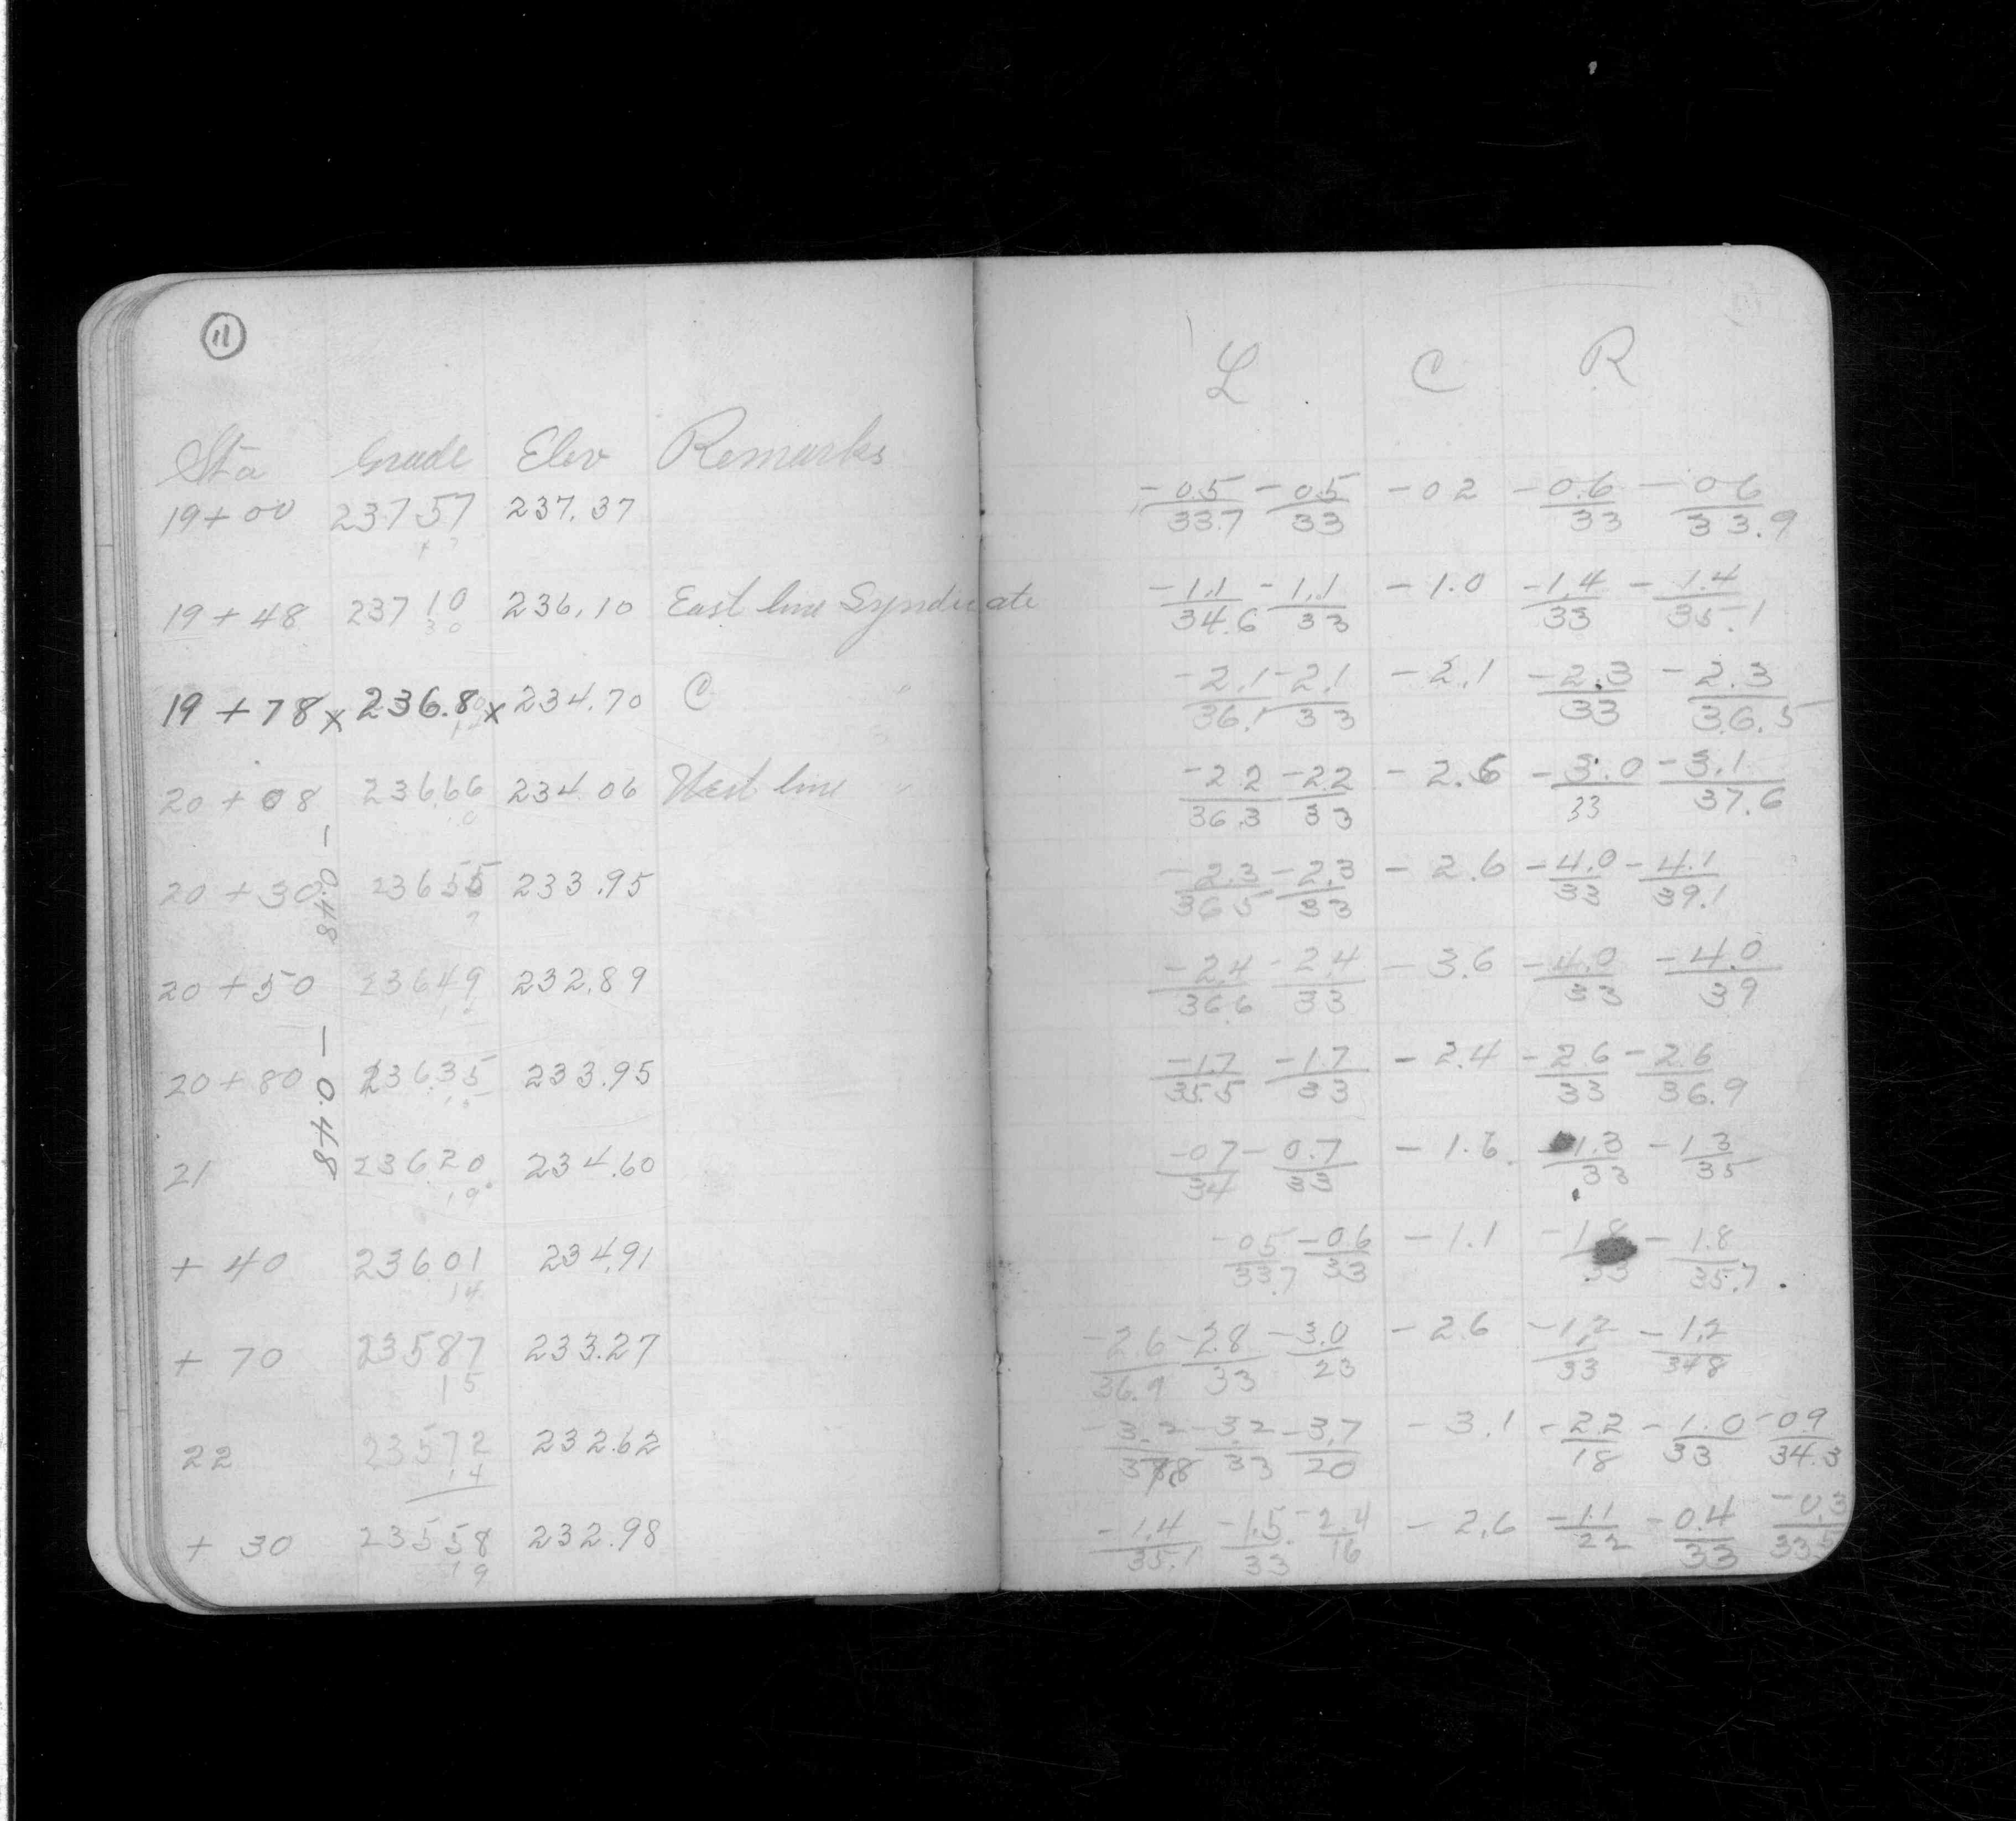 11
L C R
Sta Grade Elev Remarks
19+00 237 57 237.37 -0.5/33.7 -0.5/33 -0 2 -0.6/33 -0 6/33.9
19+48 237 10 236.10 East line Syndicate -1.1/34.6 -1.1/33 -1.0 -1.4/33 -1.4/35.1
30
19+78 x 236.8 x 234.70 C " -2.1/36.1 -2.1/33 -2.1 -2.3/33 -2.3/36.5
20+08 236.66 234.06 West line " -2 2/36.3 -2 2/33 -2.6 -3.0/33 -3.1/37.6
20+30 236 55 233.95 -2.3/36 5 -2.3/33 -2.6 -4.0/33 -4.1/39.1
-0.48
20+50 236 49 232.89 -2.4/36.6 -2.4/33 -3.6 -4.0/33 -4.0/39
20+80 236.35 233.95 -1.7/35.5 -1.7/33 -2.4 -2 6/33 -2.6/36.9
-0.48
21 236.20 234.60 -0 7/34 -0.7/33 -1.6 -1.3/33 -1 3/35
19
+40 236.01 234.91 -0 5/33.7 -0.6/33 -1.1 -1.8/33 -1.8/35.7
14
+70 235 87 233.27 -2.6/36.9 -2.8/33 -3.0/23 -2.6 -1.2/33 -1.2/34 8
15
22 235 72 232.62 -3.2 -3.2/33 -3.7/20 -3.1 -2.2/18 -1.0/33 -0 9/34.3
14
+30 235 58 232.98 -1.4/35.1 -1.5/33 -2.4/16 -2.6 -1.1/22 -0.4/33 -0.3/33.5
19